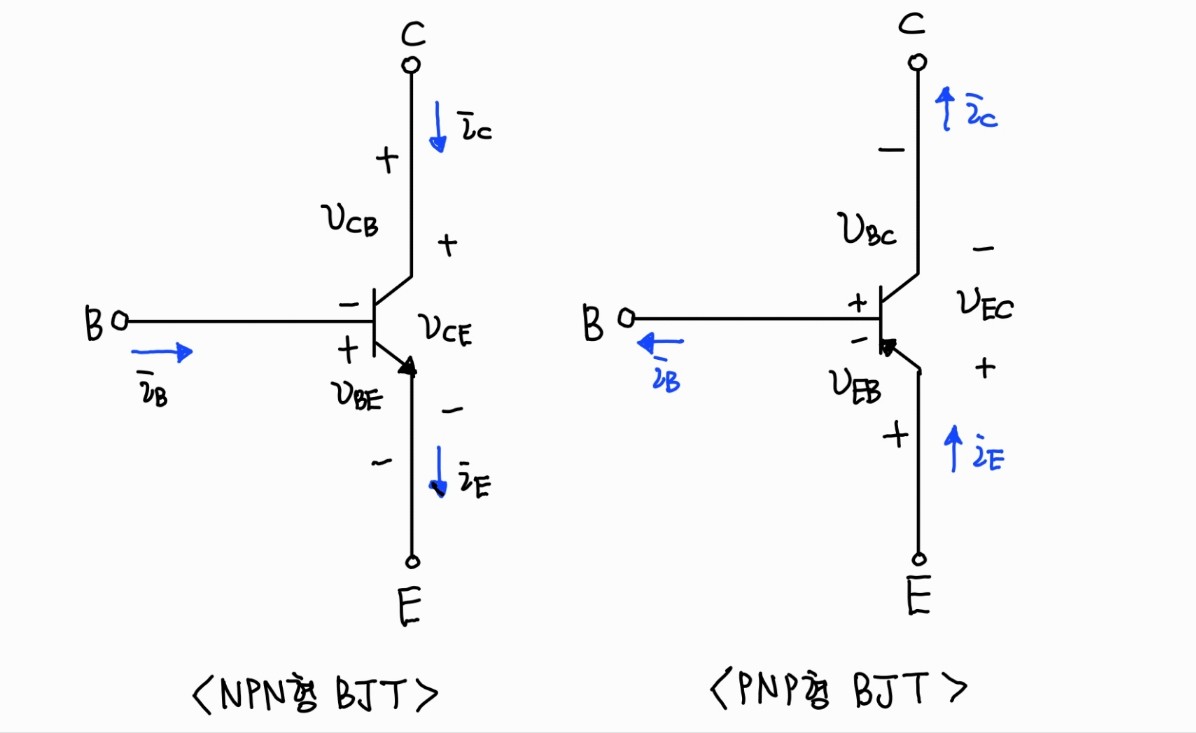 C
i_C
+
v_CB
+
B
−
+
v_CE
i_B
v_BE
−
−
i_E
E
<NPN형 BJT>
C
i_C
−
v_BC
−
B
+
−
v_EC
i_B
v_EB
+
+
i_E
E
<PNP형 BJT>